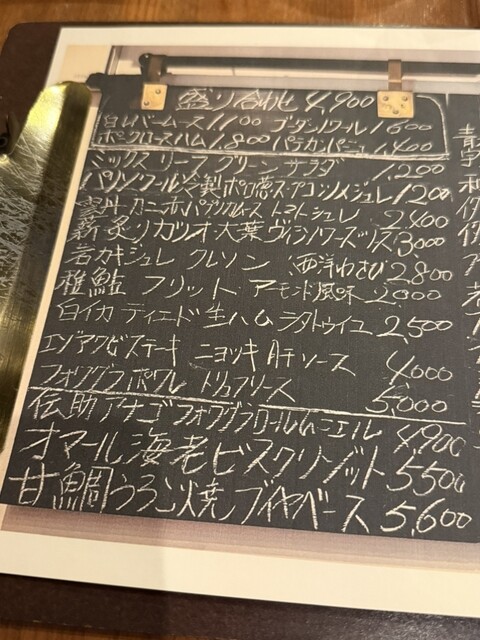 盛り合わせ 4,900
白レバームース 1,100 ゴーダンノワール 1,600
ポークロースハム 1,800 パテカンパーニュ 1,400
ミックスリーフグリーンサラダ 1,200
パリソワール冷製 コンソメジュレ 1200
雲丹 カニ パプリカムース トマトジュレ 2,400
薪炙りカツオ大葉ヴィシソワーズソース 3,000
岩カキジュレ クレソン 西洋わさび 2,800
稚鮎 フリット アーモンド風味 2,000
白イカ ティエード 生ハム ラタトゥイユ 2,500
エゾアワビステーキ ニョッキ 肝ソース 4,000
フォワグラポワレ トリュフソース 5,000
伝助アナゴフォワグラロールムニエル 4900
オマール海老ビスクリゾット 5500
甘鯛うろこ焼ブイヤベース 5,600